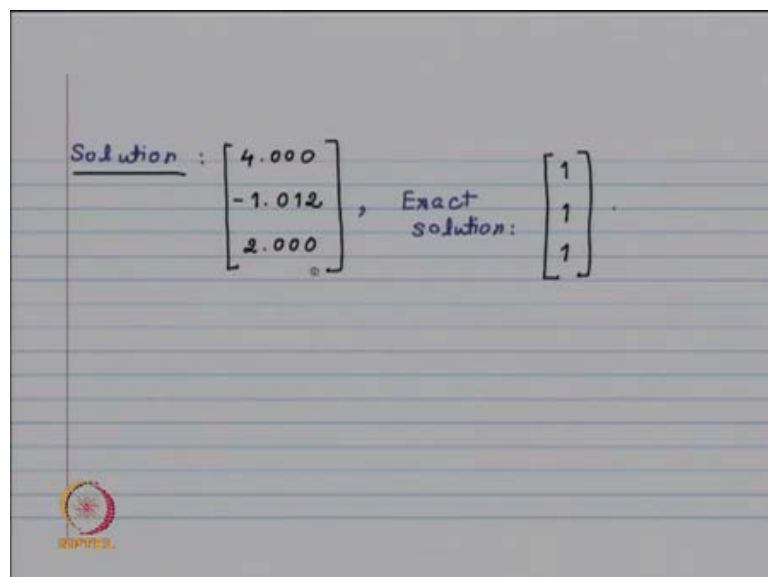 Solution : [ 4.000 -1.012 2.000 ] , Exact solution: [ 1 1 1 ] .